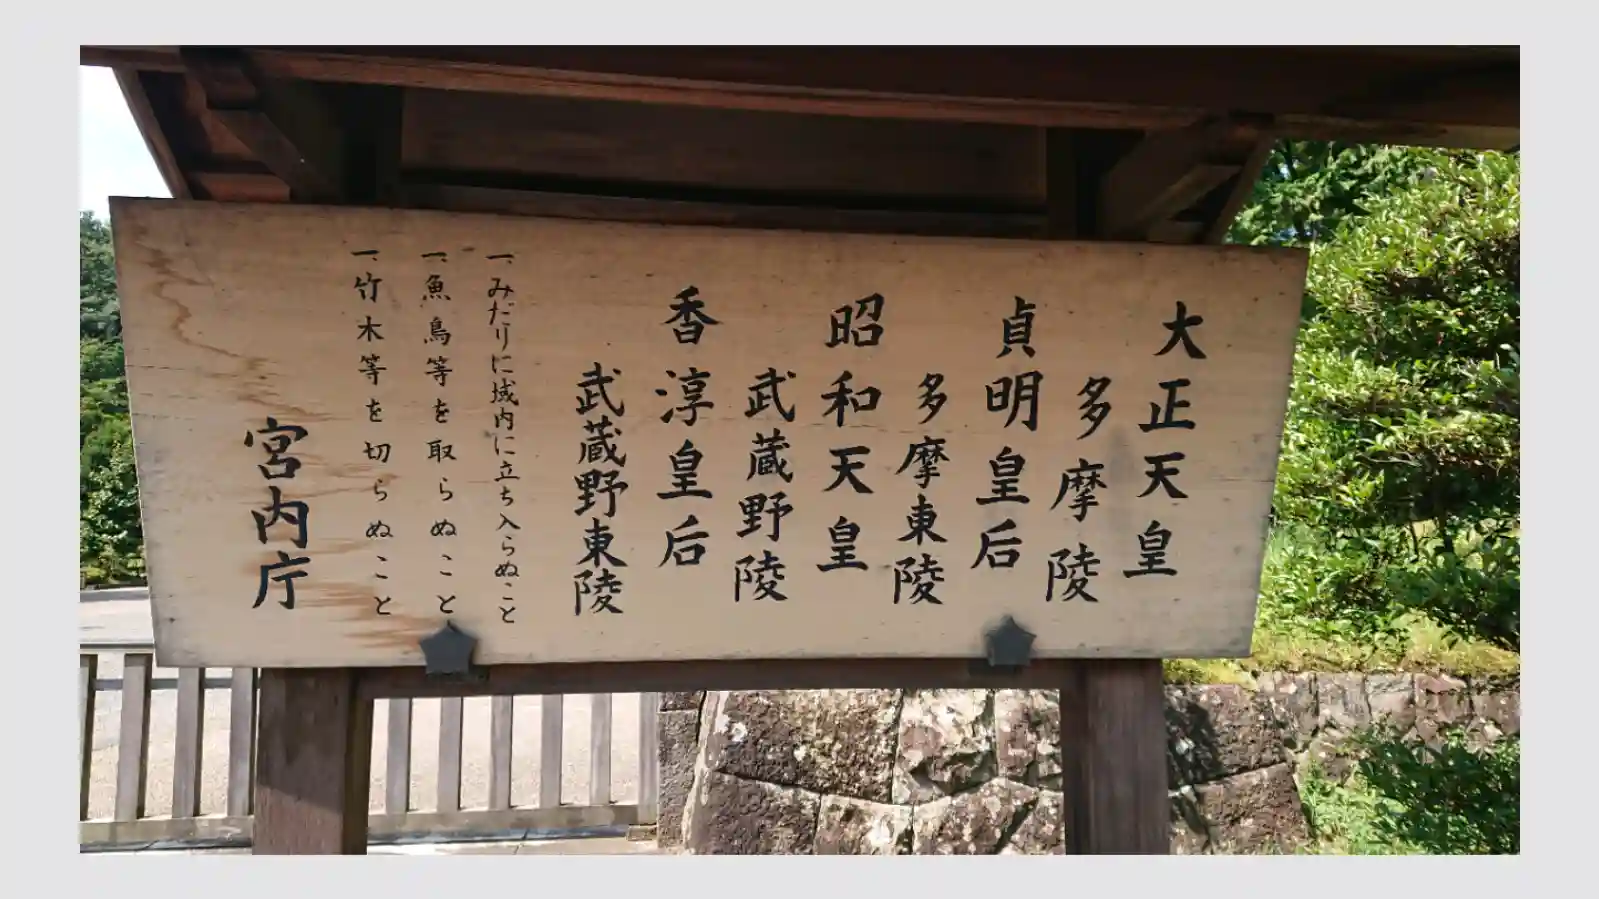 大正天皇
多摩陵
貞明皇后
多摩東陵
昭和天皇
武蔵野陵
香淳皇后
武蔵野東陵
一、みだりに域内に立ち入らぬこと
一、魚鳥等を取らぬこと
一、竹木等を切らぬこと
宮内庁